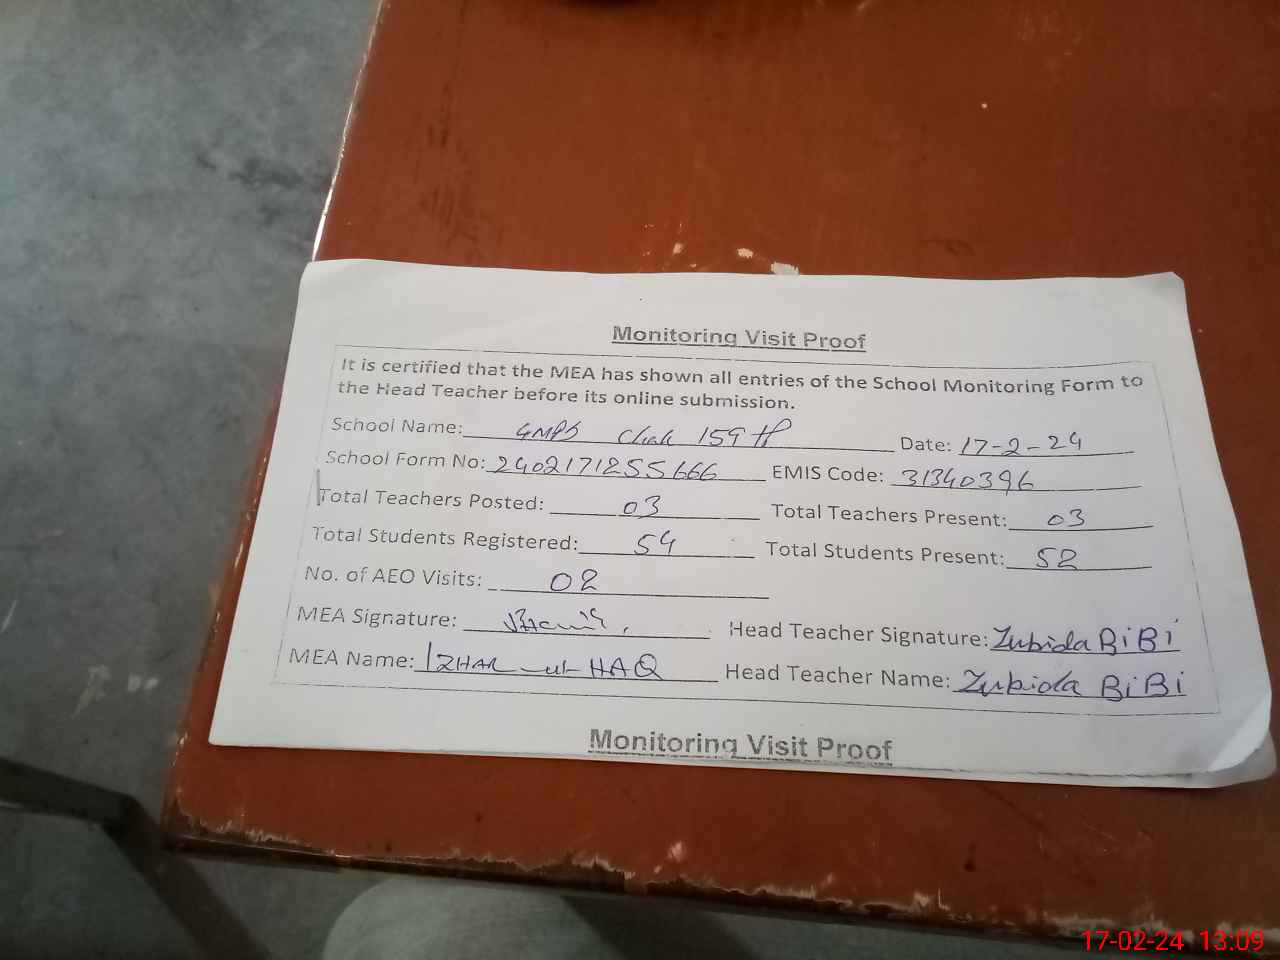 Monitoring Visit Proof
It is certified that the MEA has shown all entries of the School Monitoring Form to
the Head Teacher before its online submission.
School Name: GMPS Chak 159 Date: 17-2-24
School Form No: 2402171255666 EMIS Code: 31340396
Total Teachers Posted: 03 Total Teachers Present: 03
Total Students Registered: 54 Total Students Present: 52
No. of AEO Visits: 02
MEA Signature: Head Teacher Signature: Zubida BiBi
MEA Name: IZHAR-ul-HAQ Head Teacher Name: Zubida BiBi
Monitoring Visit Proof
17-02-24 13:09